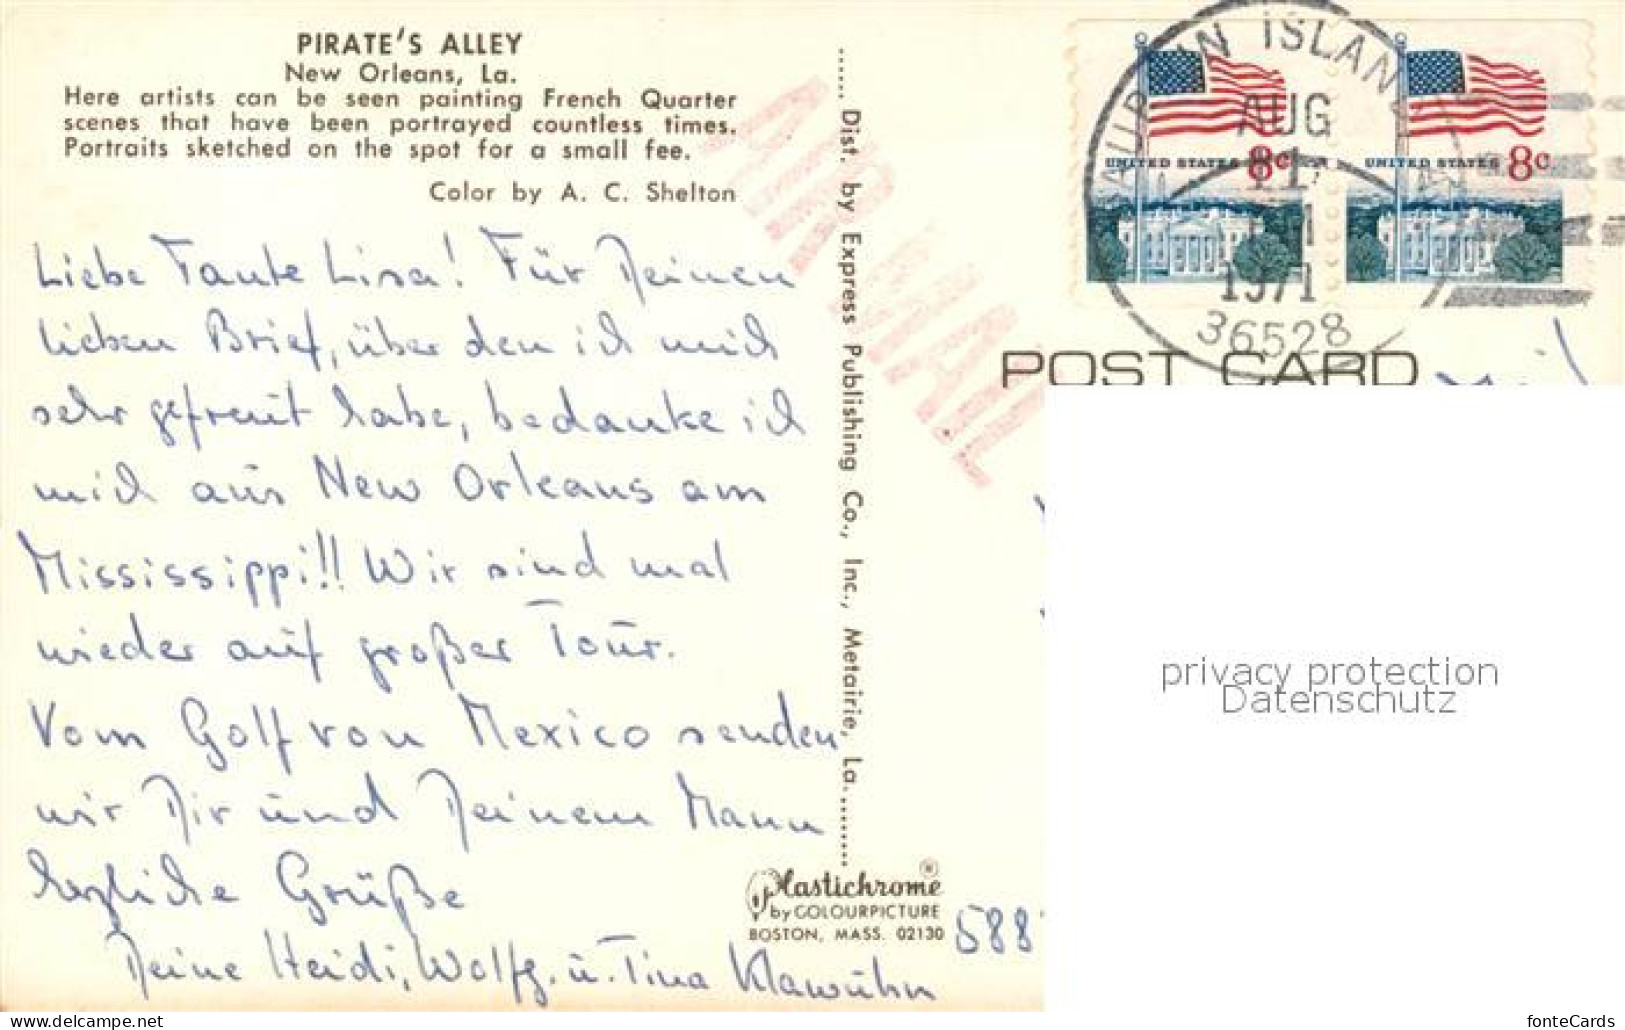 PIRATE'S ALLEY
New Orleans, La.
Here artists can be seen painting French Quarter
scenes that have been portrayed countless times.
Portraits sketched on the spot for a small fee.
Color by A. C. Shelton
Liebe Tante Lisa! Für Deinen
lieben Brief, über den ich mich
sehr gefreut habe, bedanke ich
mich aus New Orleans am
Mississippi!! Wir sind mal
wieder auf großer Tour.
Vom Golf von Mexico senden
wir Dir und Deinem Mann
herzliche Grüße
Deine Heidi, Wolfg. u. Tina Klawuhn
Dist. by Express Publishing Co., Inc., Metairie, La.
Plastichrome®
by COLOURPICTURE
BOSTON, MASS. 02130
588
AIR MAIL
UNITED STATES 8c
UNITED STATES 8c
ISLAND
AUG
11
1971
36528
POST CARD
privacy protection
Datenschutz
https://www.delcampe.net
fonteCards